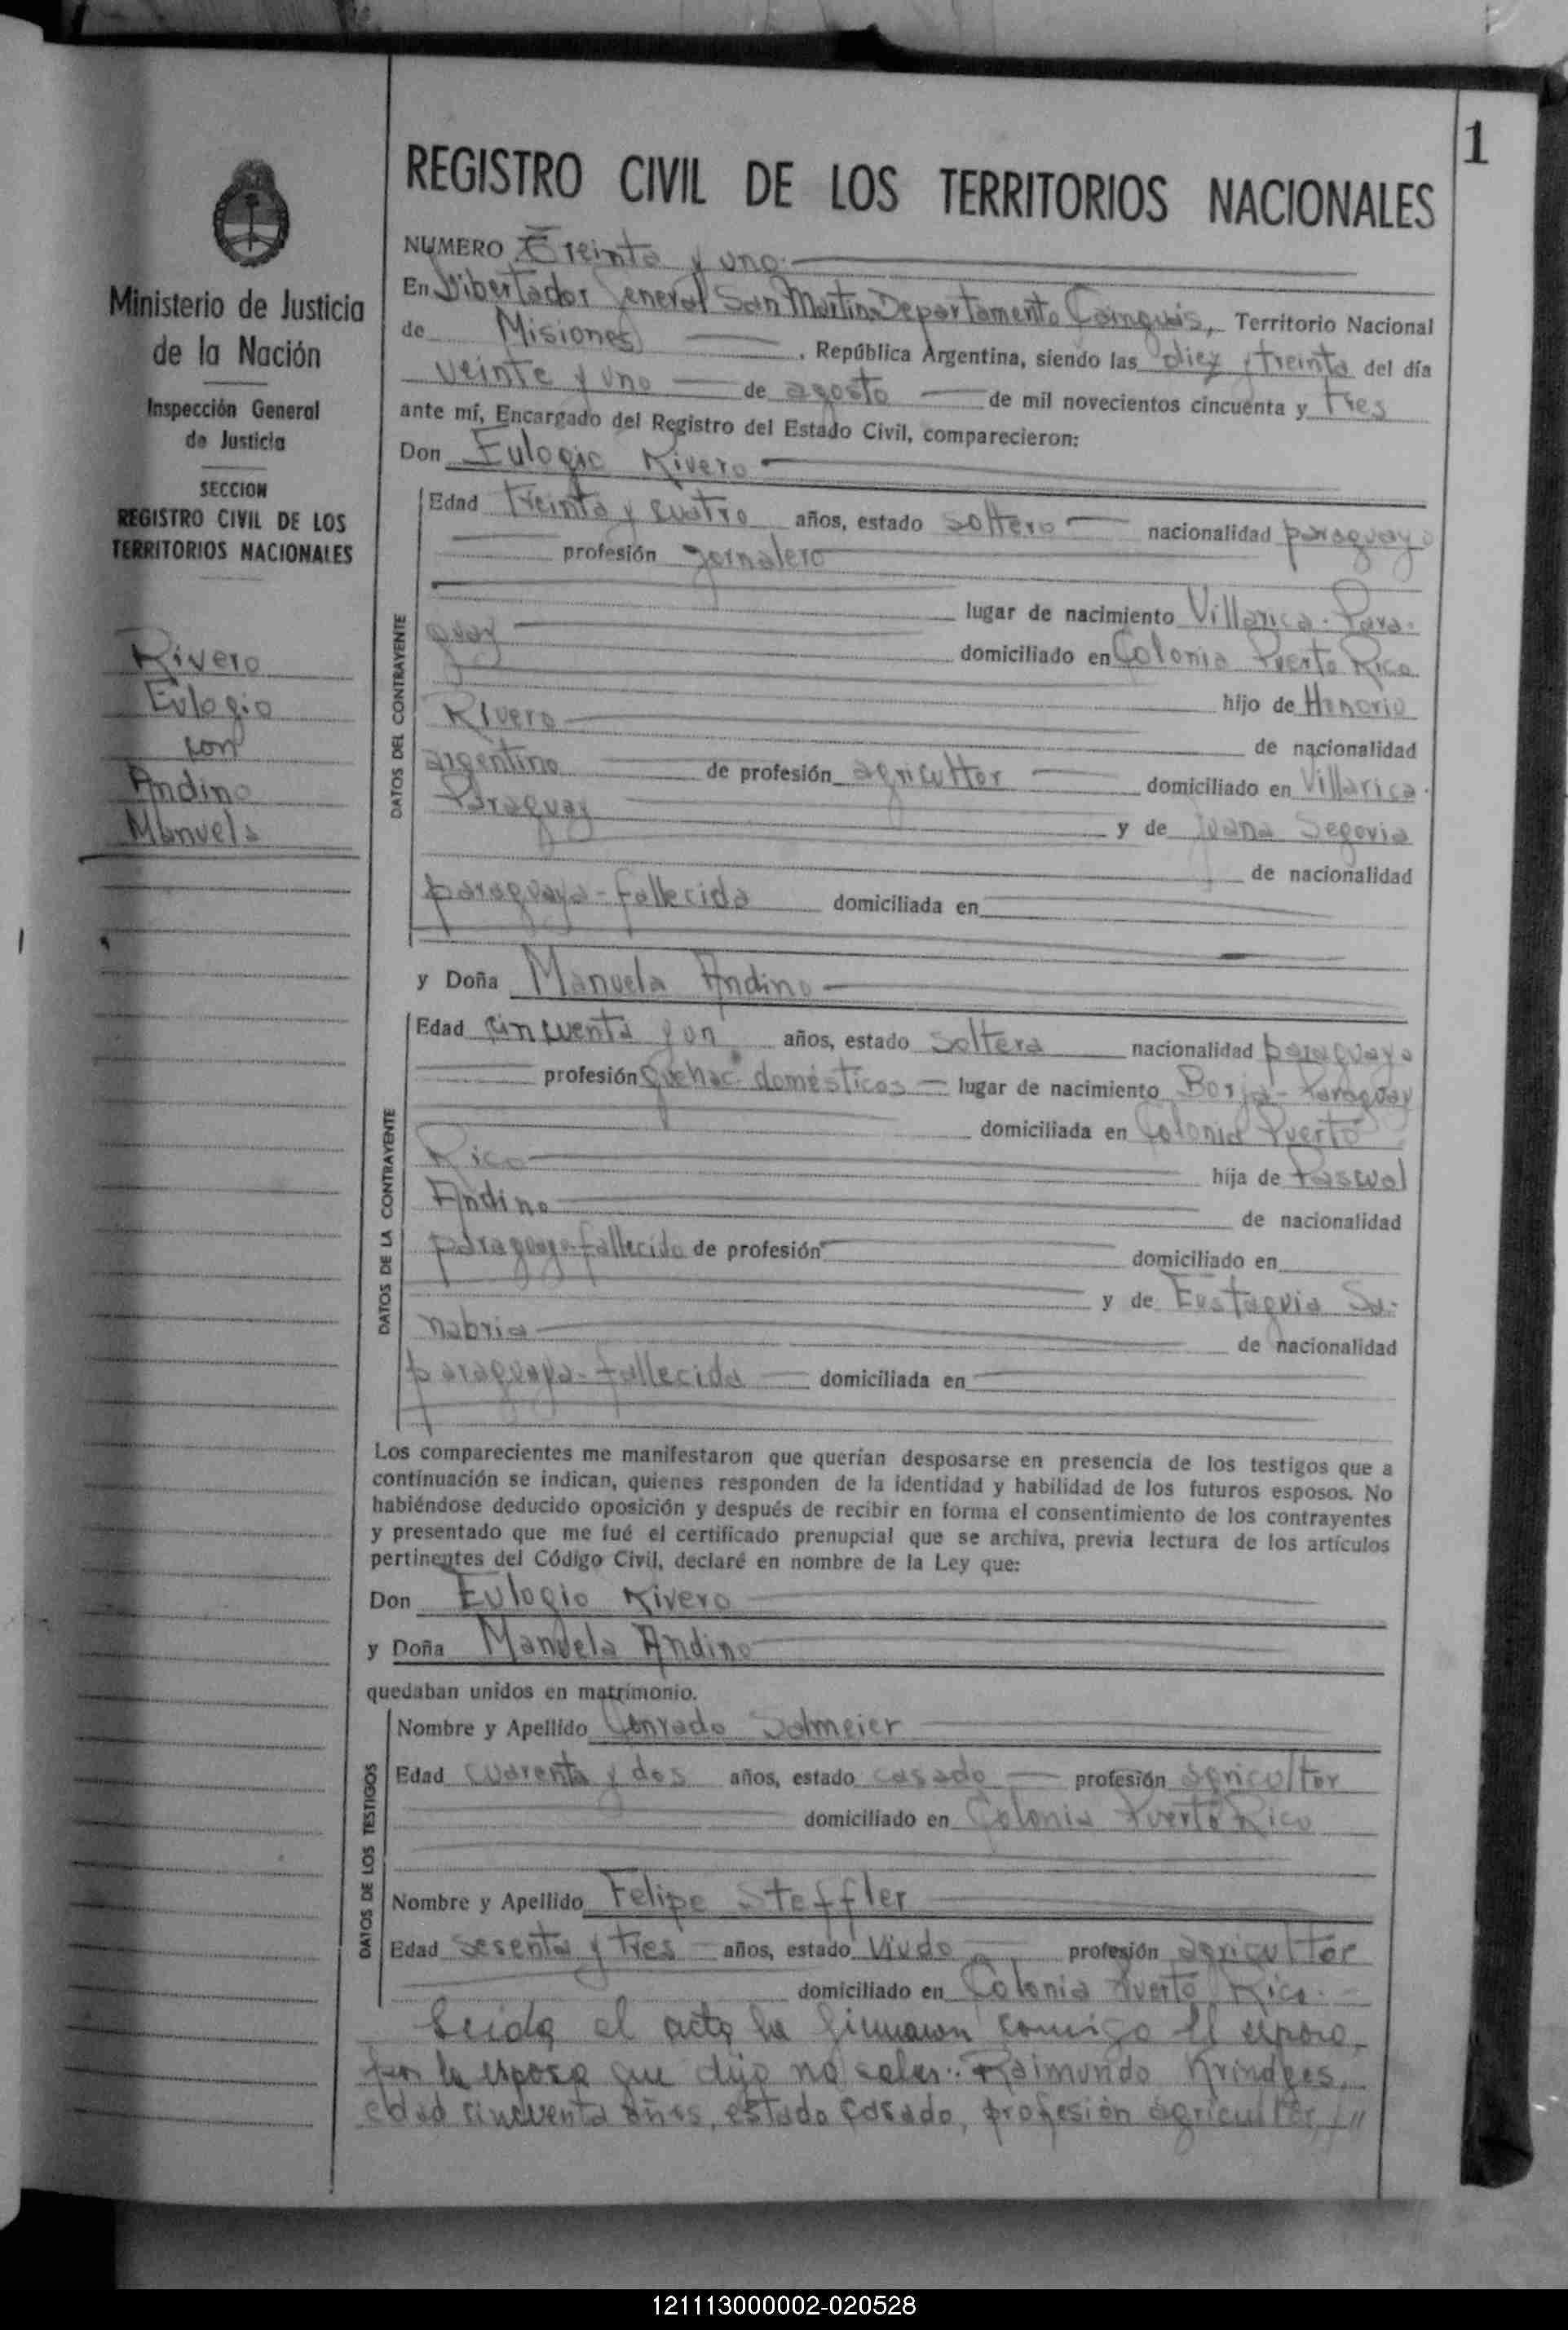 1
REGISTRO CIVIL DE LOS TERRITORIOS NACIONALES
Ministerio de Justicia
de la Nación
Inspección General
de Justicia
SECCION
REGISTRO CIVIL DE LOS
TERRITORIOS NACIONALES
Rivero
Eulogio
con
Andino
Manuela
NUMERO Treinta y uno
En Libertador General San Martín Departamento Cainguás, Territorio Nacional
de Misiones, República Argentina, siendo las diez y treinta del día
veinte y uno de agosto de mil novecientos cincuenta y tres
ante mí, Encargado del Registro del Estado Civil, comparecieron:
Don Eulogio Rivero
DATOS DEL CONTRAYENTE
Edad treinta y cuatro años, estado soltero nacionalidad paraguayo
profesión jornalero
lugar de nacimiento Villarica - Para-
guay domiciliado en Colonia Puerto Rico
hijo de Honorio
Rivero de nacionalidad
argentino de profesión agricultor domiciliado en Villarica -
Paraguay y de Juana Segovia
de nacionalidad
paraguaya - fallecida domiciliada en
y Doña Manuela Andino
DATOS DE LA CONTRAYENTE
Edad cincuenta y un años, estado soltera nacionalidad paraguaya
profesión Quehac. domésticos lugar de nacimiento Borja - Paraguay
domiciliada en Colonia Puerto
Rico hija de Pascual
Andino de nacionalidad
paraguayo-fallecido de profesión domiciliado en
y de Eustaquia Sa-
nabria de nacionalidad
paraguaya - fallecida domiciliada en
Los comparecientes me manifestaron que querían desposarse en presencia de los testigos que a
continuación se indican, quienes responden de la identidad y habilidad de los futuros esposos. No
habiéndose deducido oposición y después de recibir en forma el consentimiento de los contrayentes
y presentado que me fué el certificado prenupcial que se archiva, previa lectura de los artículos
pertinentes del Código Civil, declaré en nombre de la Ley que:
Don Eulogio Rivero
y Doña Manuela Andino
quedaban unidos en matrimonio.
DATOS DE LOS TESTIGOS
Nombre y Apellido Conrado Solmeier
Edad cuarenta y dos años, estado casado profesión agricultor
domiciliado en Colonia Puerto Rico
Nombre y Apellido Felipe Steffler
Edad sesenta y tres años, estado viudo profesión agricultor
domiciliado en Colonia Puerto Rico.
Leida el acta la firmaron conmigo el esposo,
por la esposa que dijo no saber: Raimundo Krindges,
edad cincuenta años, estado casado, profesión agricultor, //
121113000002-020528